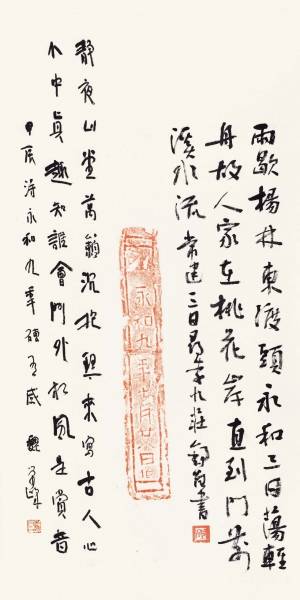 雨歇楊林東渡頭永和三日蕩輕
舟故人家在桃花岸直到門前
溪水流 常建三日尋李九莊 書
永和九年 月 日
靜夜山堂萬籟沉抱 來寫古人心
个中真趣知誰會門外松風是賞音
甲辰得永和九年磚有感